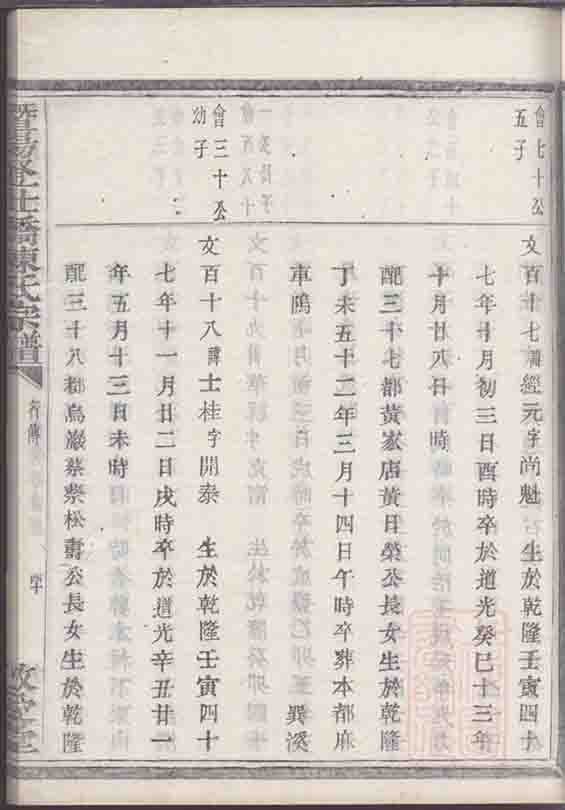 會七十公
五子
文百十七諱經元字尚魁 生於乾隆壬寅四十
七年十月初三日酉時卒於道光癸巳十三年
十月廿八日 時
配三十七都黃家店黃日榮公長女生於乾隆
丁未五十二年三月十四日午時卒葬本都麻
車隝 巽溪
會三十公
幼子
文百十八諱士桂字開泰 生於乾隆壬寅四十
七年十一月廿二日戌時卒於道光辛丑廿一
年五月十三日未時
配三十八都烏巖蔡 松壽公長女生於乾隆
橋陳氏宗譜
行傳